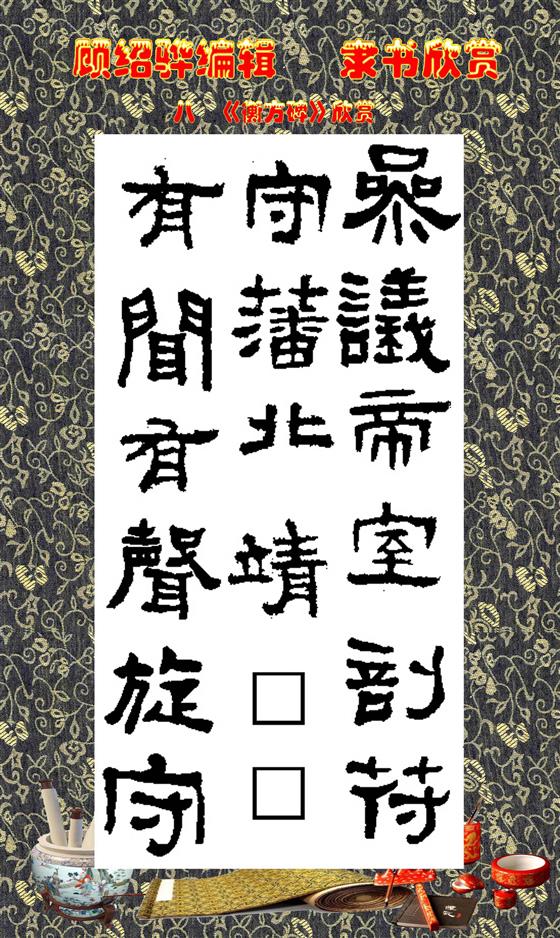 顾绍骅编辑 隶书欣赏
八 《衡方碑》欣赏
參議帝室剖苻
守藩北靖□□
有聞有聲旋守